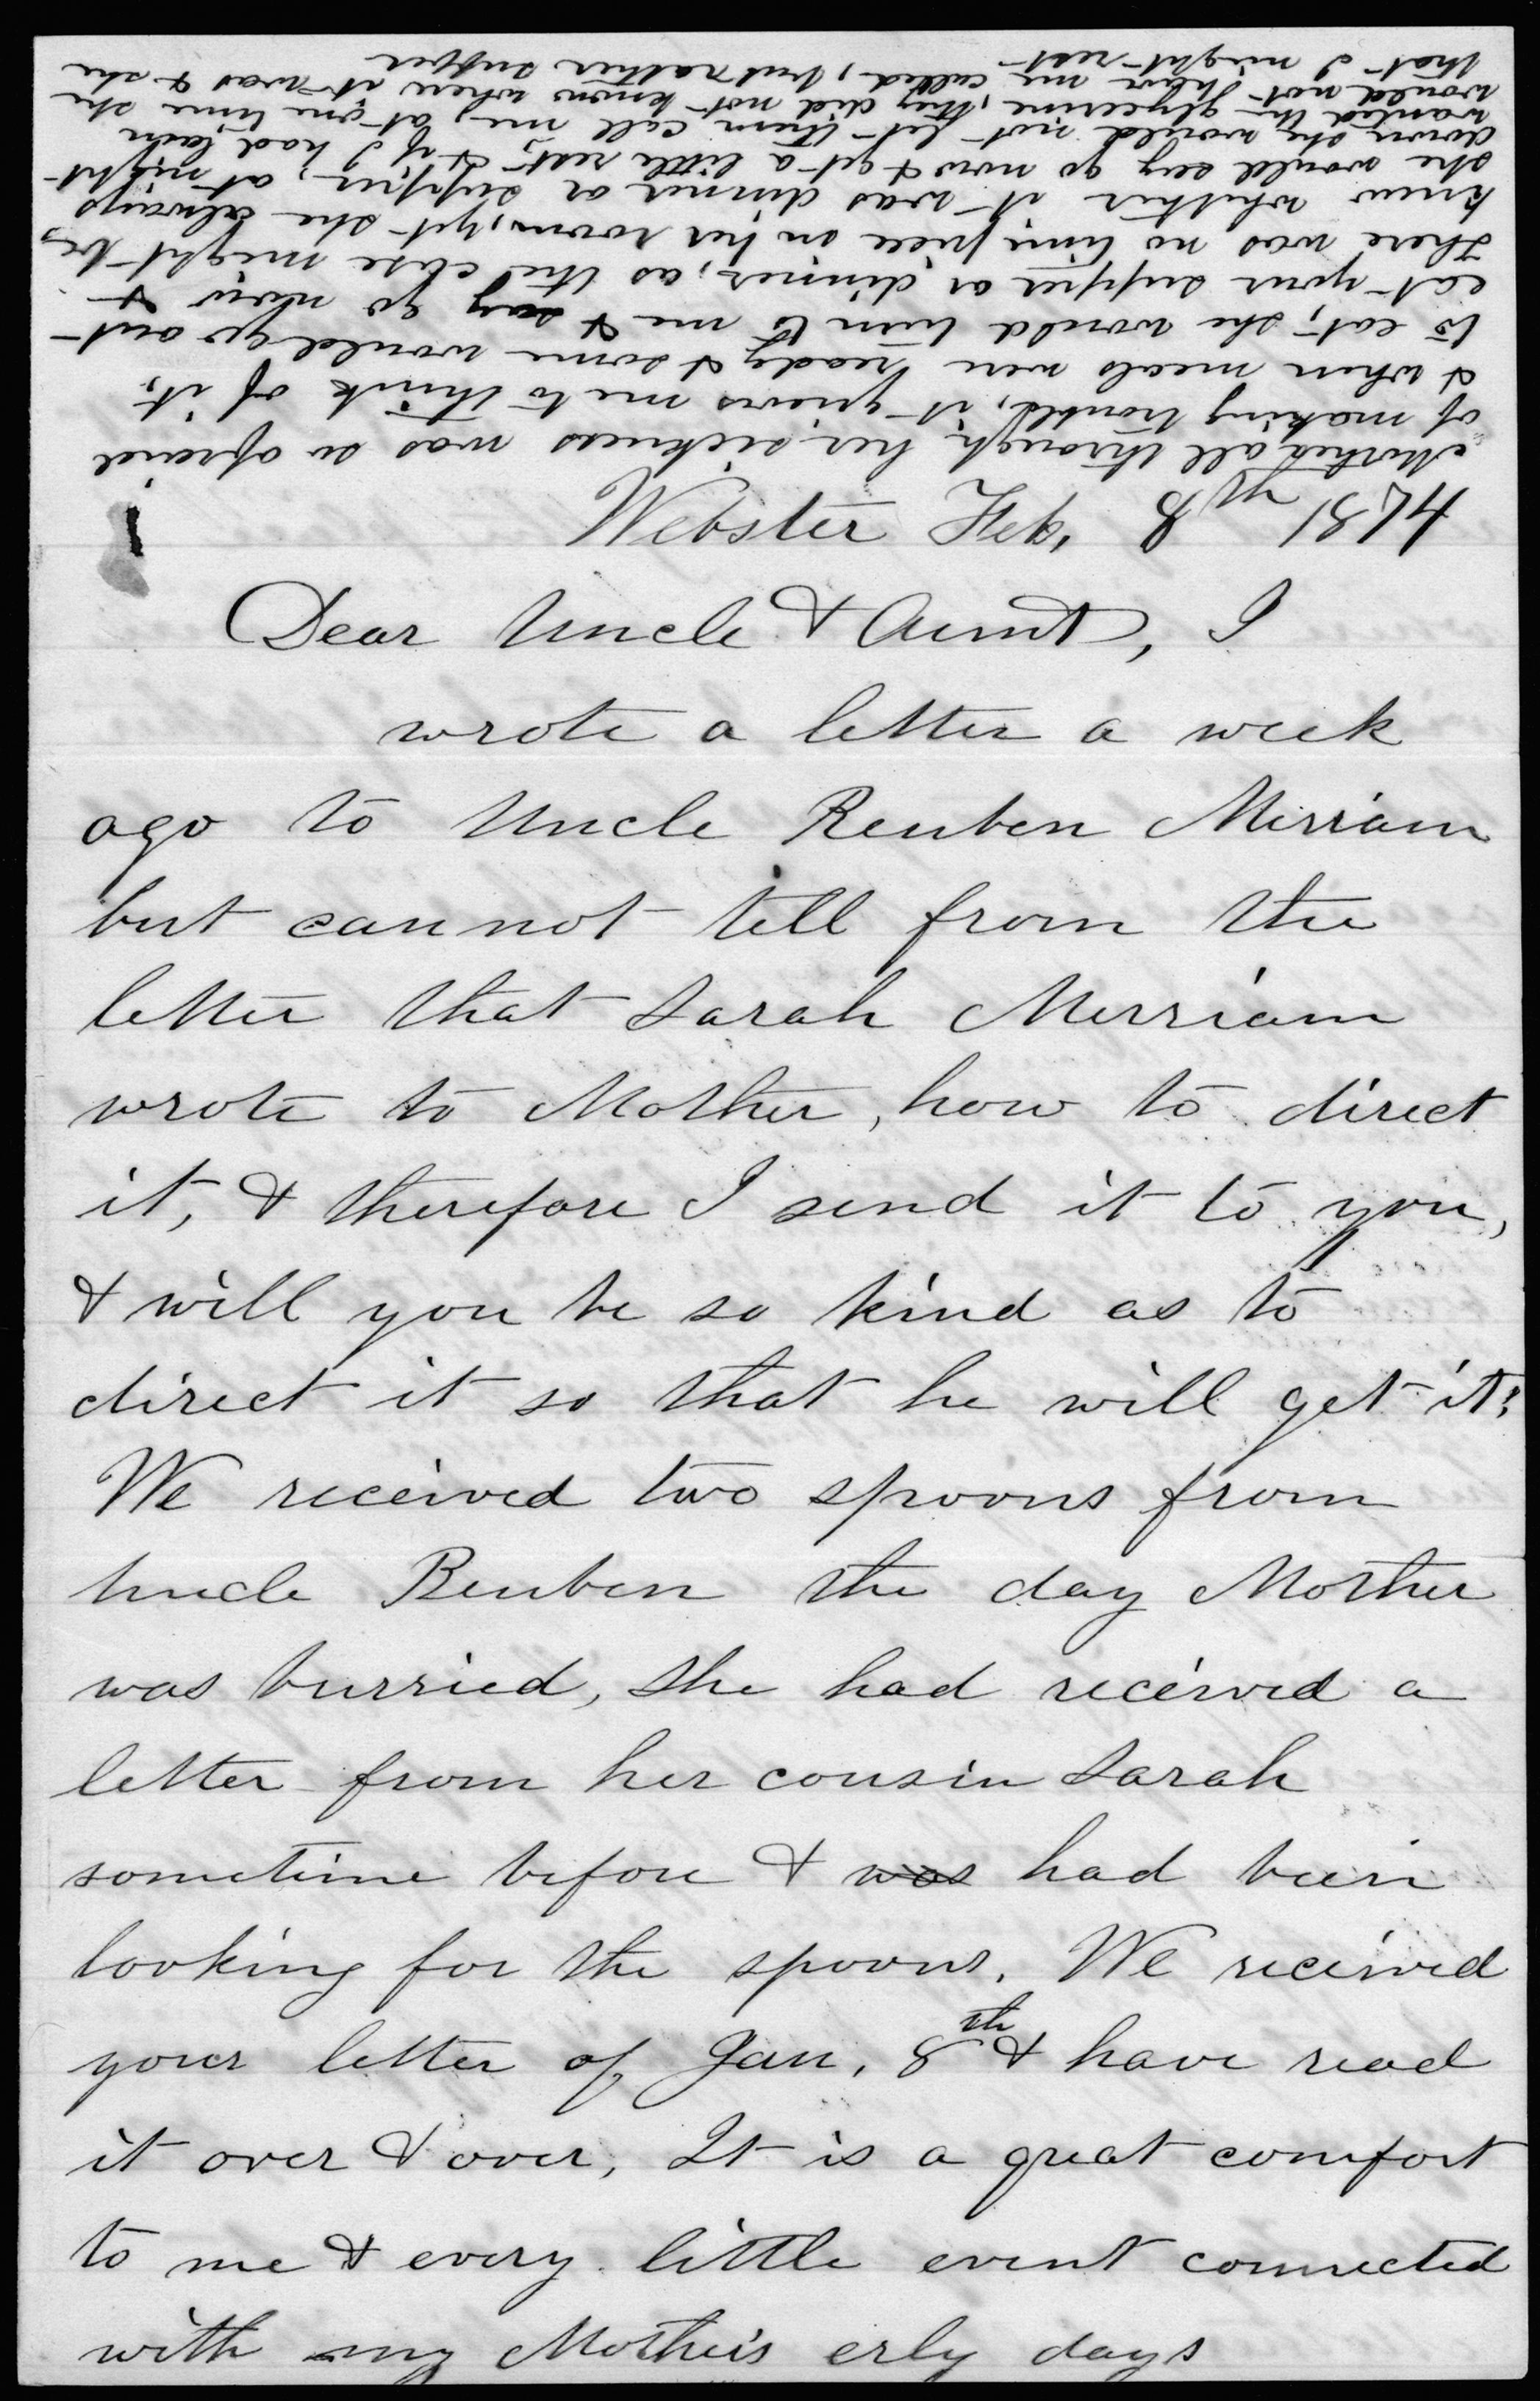 Webster Feb, 8th 1874
Dear Uncle & Aunt, I
wrote a letter a week
ago to Uncle Reuben Mirriam
but cannot tell from the
letter that Sarah Merriam
wrote to Mother, how to direct
it, & therefore I send it to you,
& will you be so kind as to
direct it so that he will get it?
We received two spoons from
Uncle Reuben the day Mother
was burried, she had received a
letter from her cousin Sarah
sometime before & was had been
looking for the spoons. We received
your letter of Jan, 8th & have read
it over & over, It is a great comfort
to me & every little event connected
with my Mother's erly days
Mother all through her sickness was so afraid
of making trouble, it grieves me to think of it,
& when meals were ready & some would go out
to eat, she would turn to me & say go now &
eat your supper or dinner, as the case might be,
there was no time piece in her room, yet she always
knew whether it was dinner or supper, at night
she would say go now & get a little rest, & if I had lain
down she would not let them call me, at one time she
wanted the glycerine, they did not know where it was & she
would not have me called, but rather suffer
that I might rest